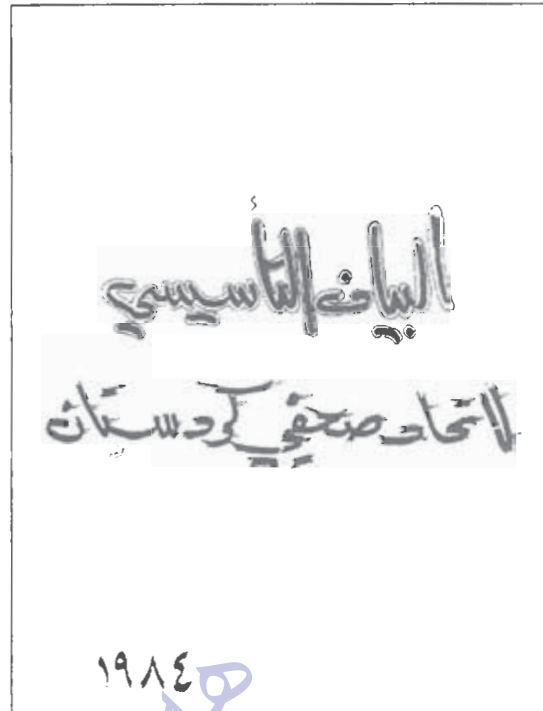 البيان التأسيسي
لاتحاد صحفيي كردستان
١٩٨٤